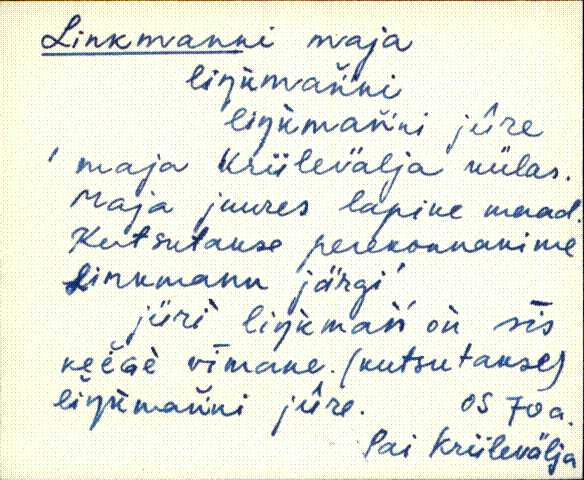 Linkmanni maja
liŋkmańńi
liŋkmańńi jûre
' maja Kriilevälja külas.
Maja juures lapike maad.
Kutsutakse perekonnanime
Linkmann järgi'
jüri liŋkmań on sīs
vīmane. (kutsutakse)
liŋkmańńi jûre. OS 70a.
Pai Kriilevälja